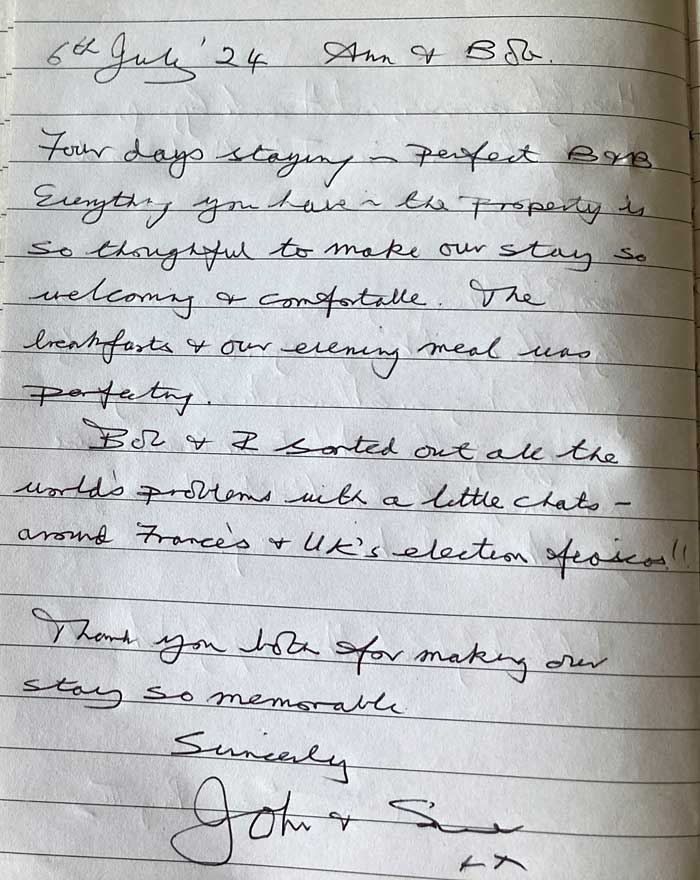 6th July '24 Ann & Bob.
Four days staying in perfect B&B
Everything you have in the property is
so thoughtful to make our stay so
welcoming & comfortable. The
breakfasts & our evening meal was
Bob & I sorted out all the
world's problems with a little chats -
around France's & UK's election fiascos!!
Thank you both for making our
stay so memorable
Sincerly
John & Sue
xx